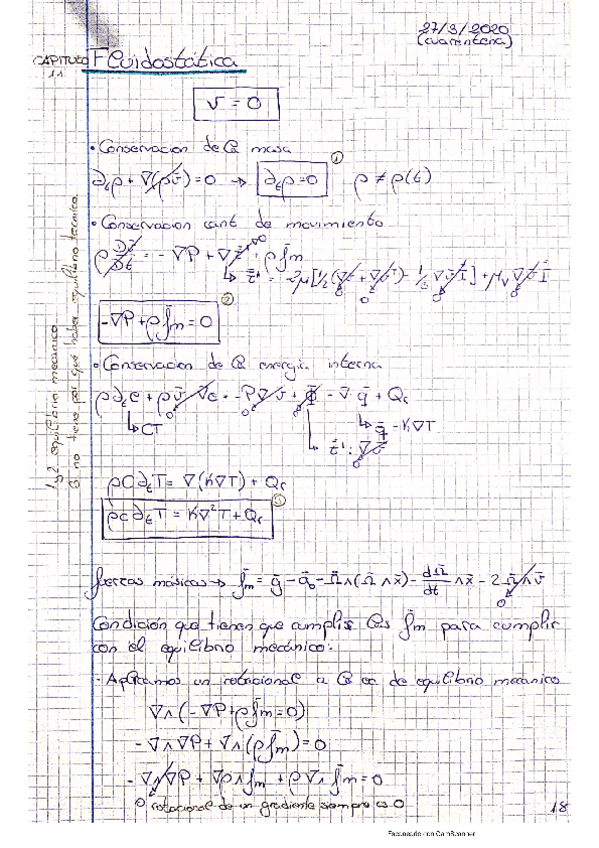 27/3/2020
(cuarentena)
CAPITULO 11
Fluidostática
v̄ = 0
• Conservacion de la masa
∂tρ + ∇(ρv̄) = 0 → ∂tρ = 0 ① ρ ≠ ρ(t)
• Conservacion cant de movimiento
ρ Dv̄/Dt = -∇P + ∇τ̄' + ρf̄m
-∇P + ρf̄m = 0 ②
• Conservacion de la energia interna
ρ∂te + ρv̄∇e = -P∇v̄ + Φ - ∇q̄ + Qr
↳ CT
↳ q̄ = -K∇T
↳ τ̄' : ∇v̄
ρC∂tT = ∇(K∇T) + Qr
ρc∂tT = K∇²T + Qr ③
1 y 2 equilibrio mecanico
no tiene por qué haber equilibrio termico.
fuerzas másicas → f̄m = ḡ - ā₀ - Ω̄∧(Ω̄∧x̄) - dΩ̄/dt ∧x̄ - 2Ω̄∧v̄
0
Condición que tienen que cumplir las f̄m para cumplir
con el equilibrio mecánico:
- Aplicamos un rotacional a la ec de equilibrio mecanico
∇∧(-∇P + ρf̄m = 0)
-∇∧∇P + ∇∧(ρf̄m) = 0
-∇∧∇P + ∇ρ∧f̄m + ρ∇∧f̄m = 0
0 rotacional de un gradiente siempre es 0
18
Escaneado con CamScanner